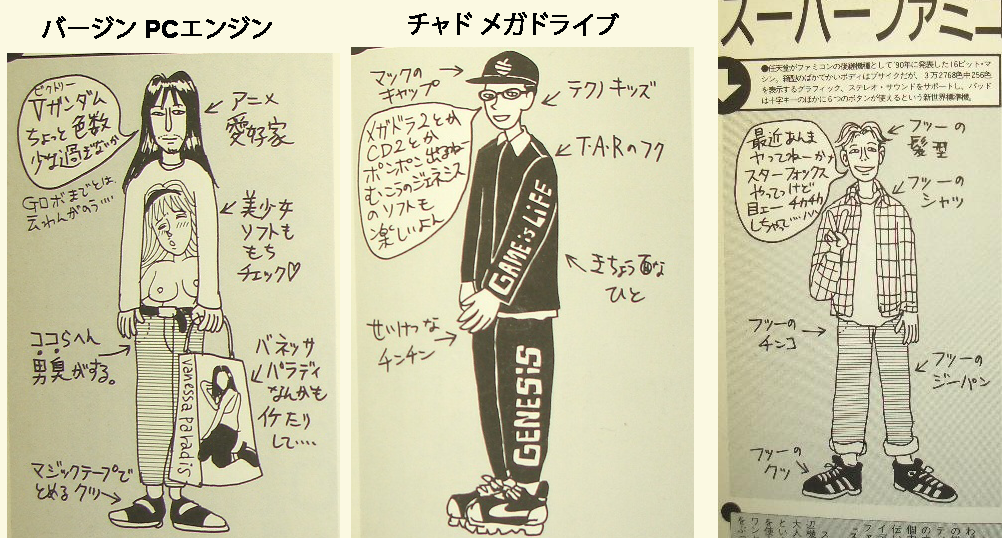 バージン PCエンジン
ビクトリー
Vガンダム
ちょっと 色数
少な過ぎないか
GロボまでとはL
云わんがのう‥‥
アニメ
愛好家
美少女
ソフトも
もち
チェック♡
ココらへん
男臭がする。
バネッサ
パラディ
なんかも
イケたり
して‥‥
vanessa paradis
マジックテープで
とめる クツ
チャド メガドライブ
マックの
キャップ
メガドラ2とか
CD2とか
ポンポン出るねー
むこうのジェネシス
のソフトも
楽しいよん
テクノキッズ
T・A・Rのフク
GAME is LiFE
きちょう面な
ひと
せいけつな
チンチン
GENESiS
スーパーファミコ
●任天堂がファミコンの後継機種として'90年に発表した16ビット・マ
シン。箱型のばかでかいボディはブサイクだが、3万2768色中256色
を表示するグラフィック、ステレオ・サウンドをサポートし、パッド
は十字キーのほかに6つのボタンが使えるという新世界標準機。
最近あんま
やってねーかな
スターフォックス
やってっけど
目ェー チカチカ
しちゃって‥‥ハハ
フツーの
髪型
フツーの
シャツ
フツーの
チンコ
フツーの
ジーパン
フツーの
クツ